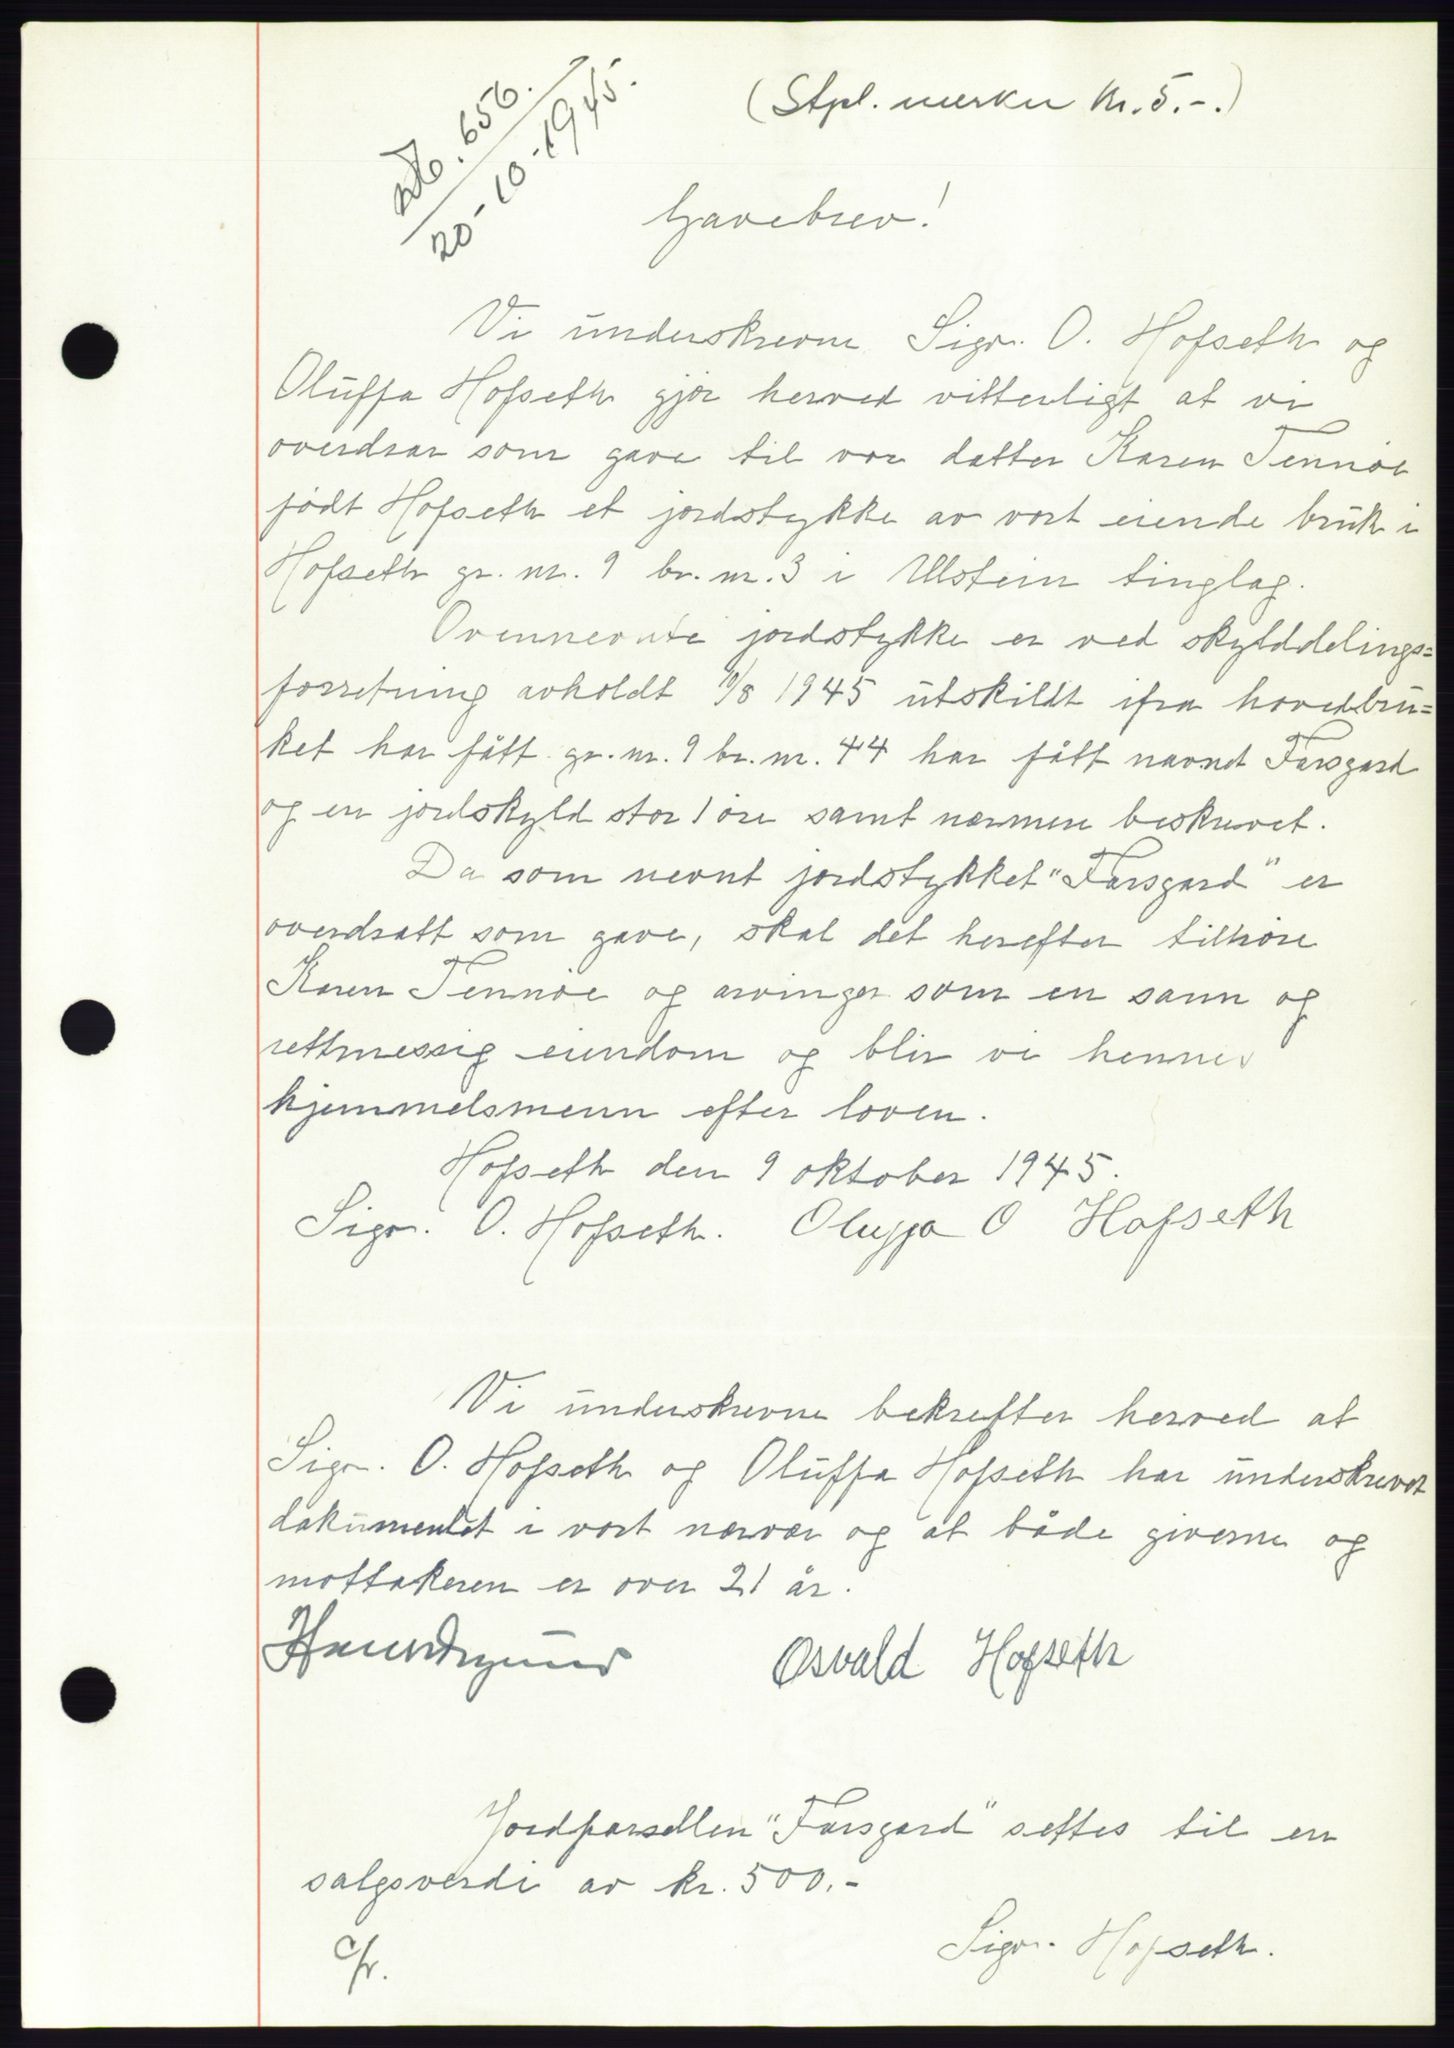 (Stpl. merker kr. 5.-.)
No. 656.
20-10-1945.
Gavebrev!
Vi underskrevne Sigv. O. Hofseth og
Oluffa Hofseth gjør herved vitterligt at vi
overdrar som gave til vor datter Karen Tennøe
født Hofseth et jordstykke av vort eiende bruk i
Hofseth gr. nr. 9 br. nr. 3 i Ulstein tinglag.
Ovennevnte jordstykke er ved skylddelings=
forretning avholdt 10/8 1945 utskildt ifra hovedbru=
ket har fått gr. nr. 9 br. nr. 44 har fått navnet Farsgard
og en jordskyld stor 1 øre samt nærmere beskrevet.
Da som nevnt jordstykket "Farsgard" er
overdratt som gave, skal det herefter tilhøre
Karen Tennøe og arvinger som en sann og
rettmessig eiendom og blir vi hennes
hjemmelsmenn efter loven.
Hofseth den 9 oktober 1945.
Sigv. O. Hofseth. Oluffa O Hofseth
Vi underskrevne bekrefter herved at
Sigv. O. Hofseth og Oluffa Hofseth har underskrevet
dokumentet i vort nærvær og at både giverne og
mottakeren er over 21 år.
Osvald Hofseth
Jordparsellen "Farsgard" settes til en
salgsverdi av kr. 500.-
Sigv. Hofseth.